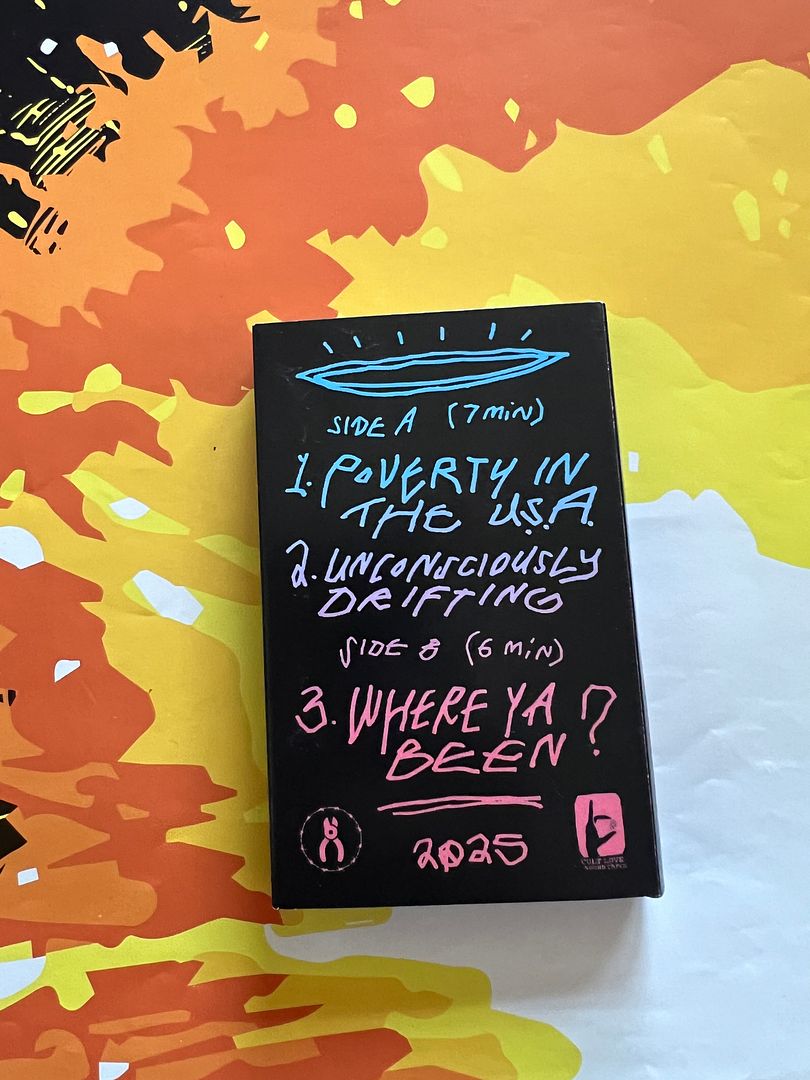 SIDE A (7 MIN)
1. POVERTY IN
THE U.S.A.
2. UNCONSCIOUSLY
DRIFTING
SIDE B (6 MIN)
3. WHERE YA
BEEN?
2025
CULT LOVE
SOUND TAPES